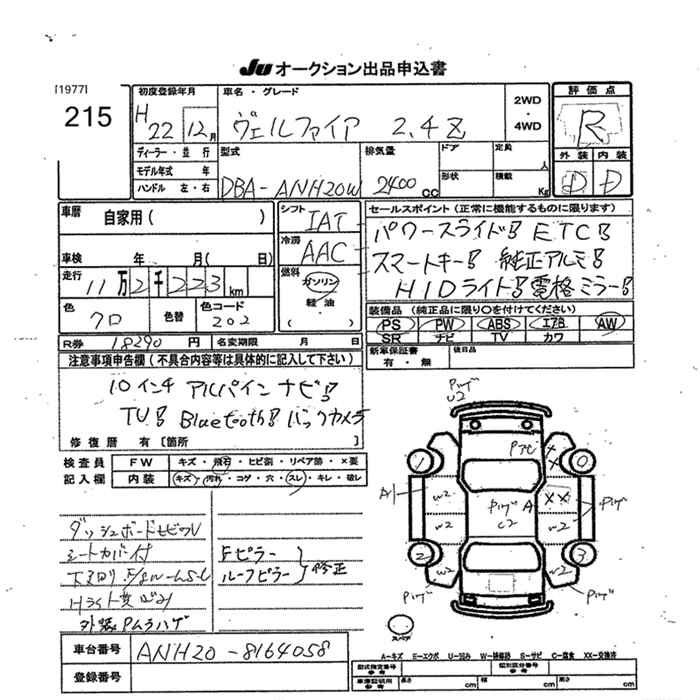 JU オークション出品申込書
[1977]
215
初度登録年月
H 22 12月
車名・グレード
ヴェルファイア 2.4Z
2WD
・
4WD
評価点
R
外装 内装
D D
ディーラー・並行
モデル年式 年
ハンドル 左・右
型式
DBA-ANH20W
排気量
2400 cc
ドア
形状
定員 人
積載 Kg
車歴 自家用( )
車検 年 月( 日)
走行 11万2千223km
色 クロ 色替 色コード 202
シフト IAT
冷房 AAC
燃料 ガソリン
軽油
・( )
セールスポイント(正常に機能するものに限ります)
パワースライド ETC
スマートキー 純正アルミ
HIDライト 電格ミラー
装備品(純正品に限り○を付けてください)
PS PW ABS エアB AW
SR ナビ TV カワ
R券 18290円 名変期限 月 日
新車保証書
有・無
後日品
注意事項申告欄(不具合内容等は具体的に記入して下さい)
10インチ アルパインナビ
TV Bluetooth バックカメラ
修復歴 有〔箇所 〕
検査員
記入欄
FW キズ・飛石・ヒビ割・リペア跡・×要
内装 キズ・汚れ・コゲ・穴・スレ・キレ・破レ
ダッシュボード
シートカバー付
下廻り
Hライト黄
外装
Fピラー
ルーフピラー
修正
車台番号 ANH20-8164058
登録番号
Pハゲ
U2
Pハゲ
C2
A
A1
XX
W2
W2
W2
W2
W2
W2
Pハゲ
Pハゲ
Pハゲ
1
0
2
3
スペア
A-キズ E-エクボ U-凹み W-補修跡 S-サビ C-腐食 XX-交換済
型式指定番号
参考
類別区分番号
参考
車庫証明用
参考
長さ cm
幅 cm
高さ cm